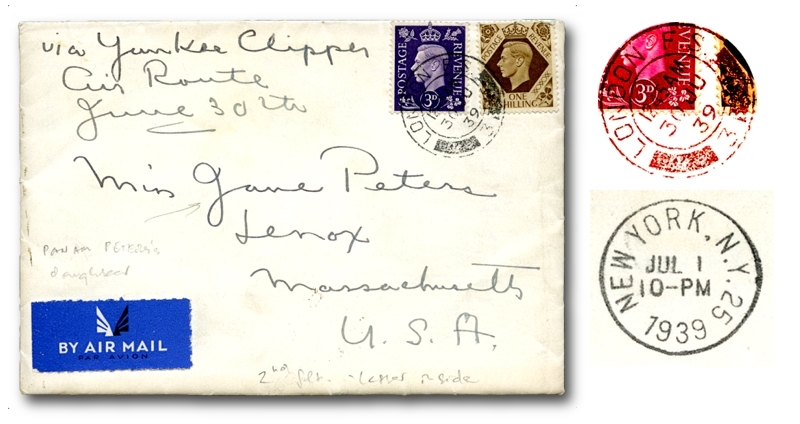 via Yankee Clipper
Air Route
June 30th
POSTAGE REVENUE
3D
POSTAGE REVENUE
ONE SHILLING
LONDON F
30 JU
39
Miss Jane Peters
Lenox
Massachusetts
U. S. A.
PAN AM PETERS'S
daughter
BY AIR MAIL
PAR AVION
2nd flt. - letter inside
LONDON F
AM
30 JU
39
VENUE
3D
NEW YORK, N.Y. 25
JUL 1
10-PM
1939